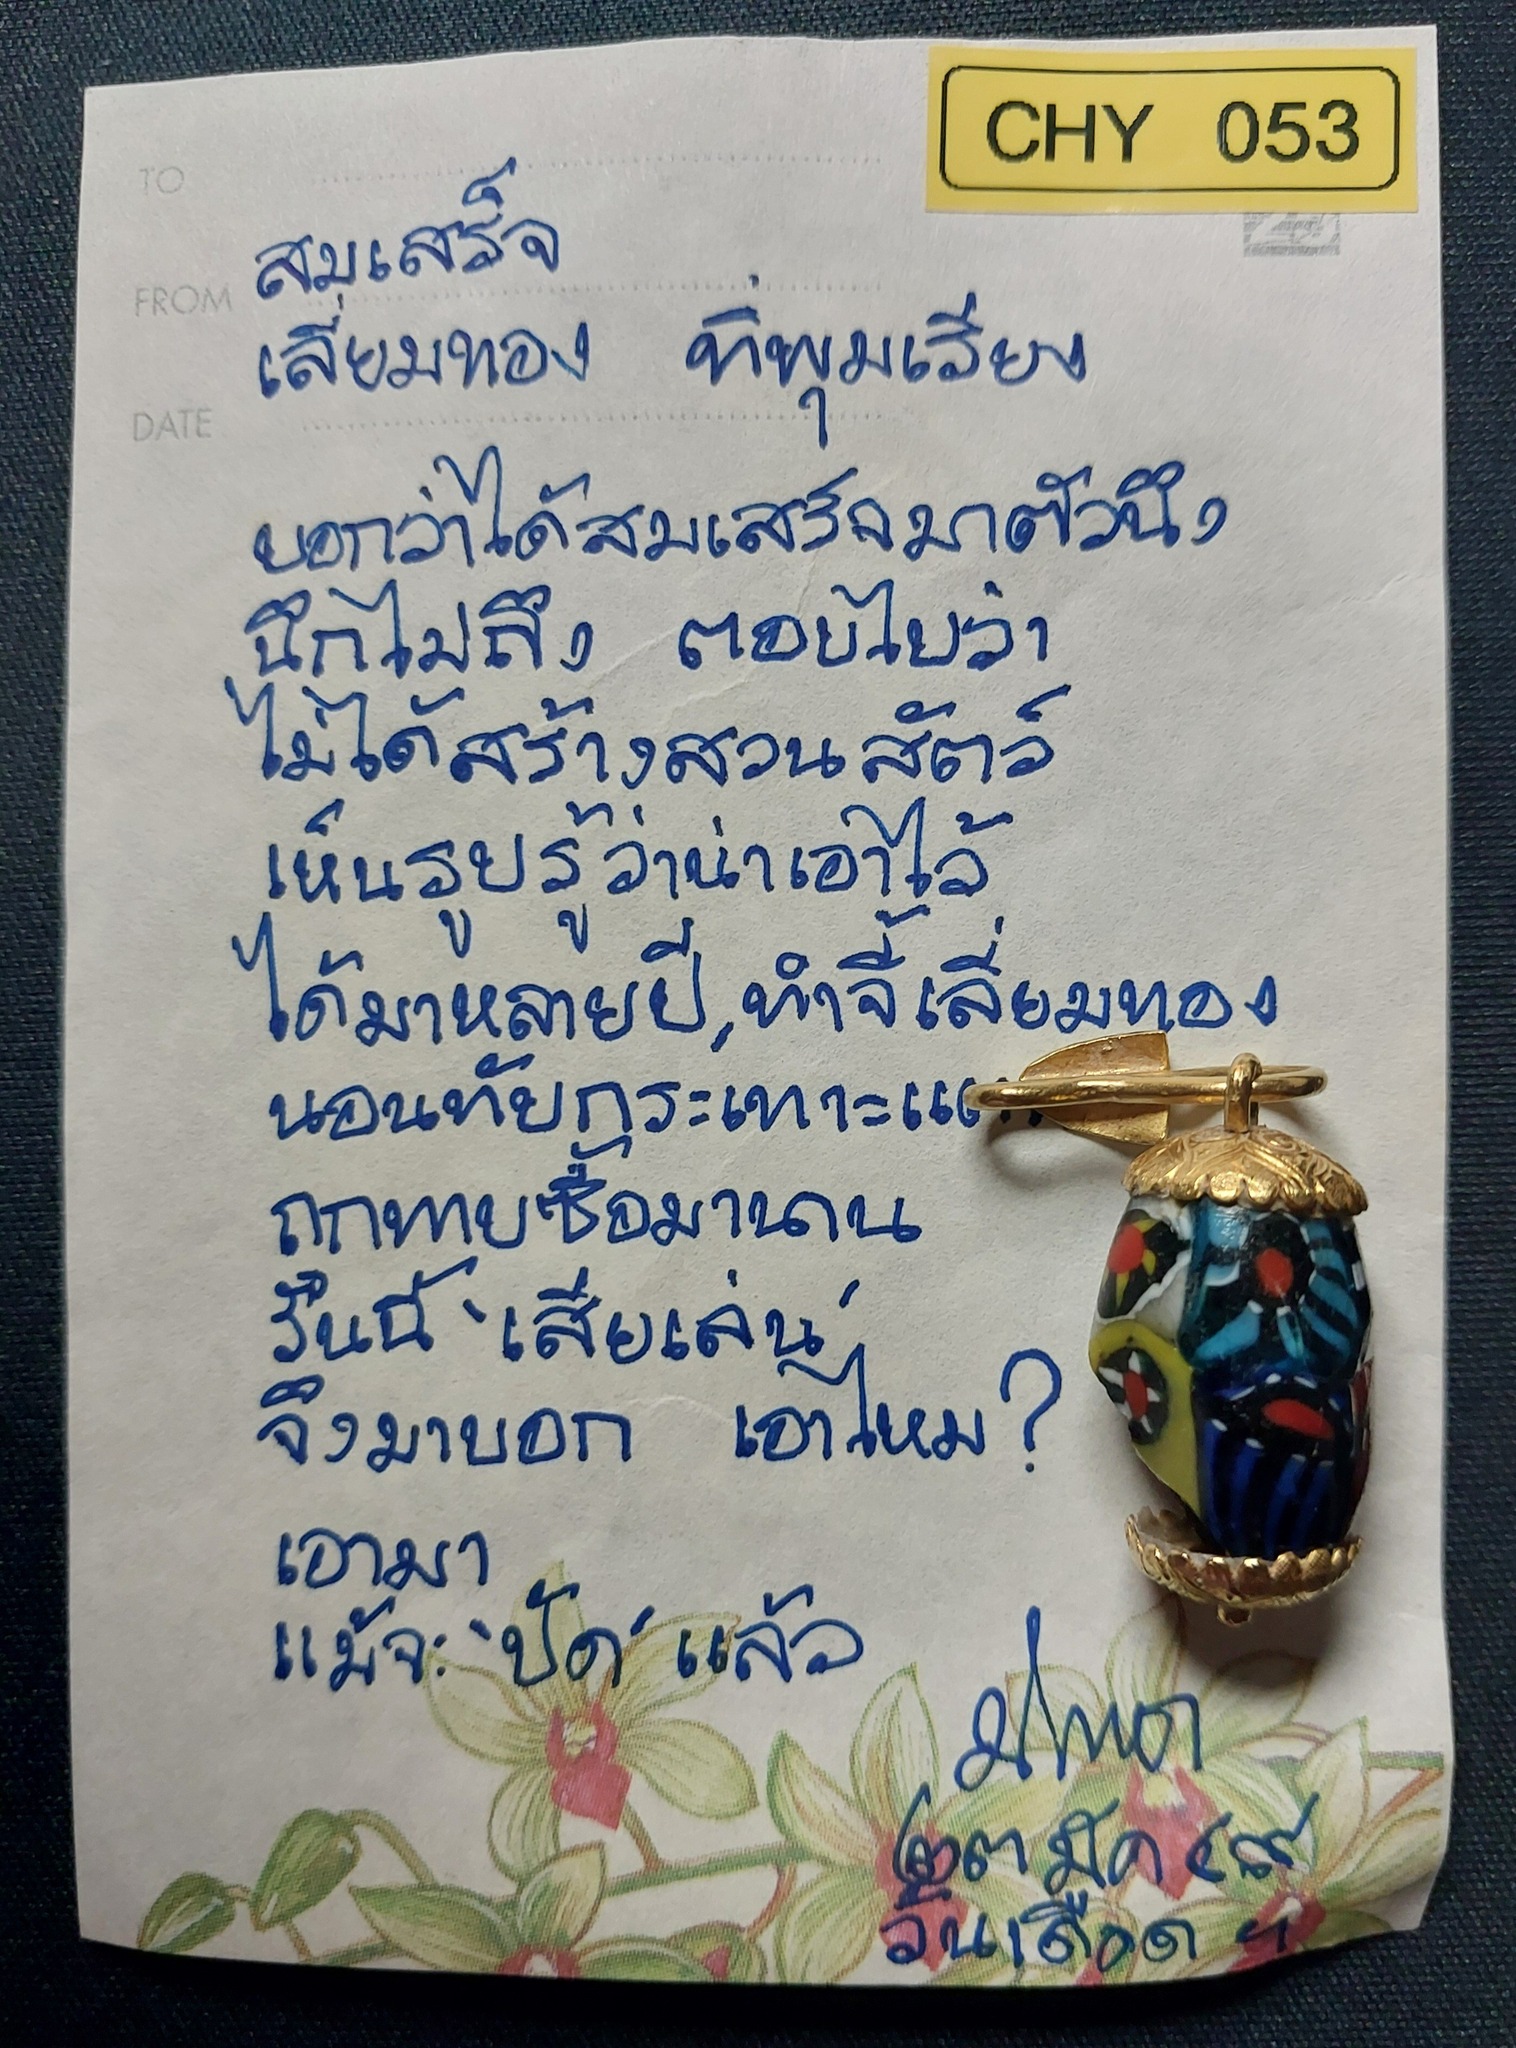 CHY 053
TO
สมเสร็จ
FROM
เลี่ยมทอง ที่พุมเรียง
DATE
บอกว่าได้สมเสร็จมาตัวนึง
นึกไม่ถึง ตอบไปว่า
ไม่ได้สร้างสวนสัตว์
เห็นรูปรู้ว่าน่าเอาไว้
ได้มาหลายปี, ทำจี้เลี่ยมทอง
นอนทับกระเทาะ
ถูกทาบซื้อมานาน
วันนี้ "เสี่ยเล่น"
จึงมาบอก เอาไหม?
เอามา
แม้จะ "ปัด" แล้ว
๒๓ มีค ๔๙
วันเดือด ฯ